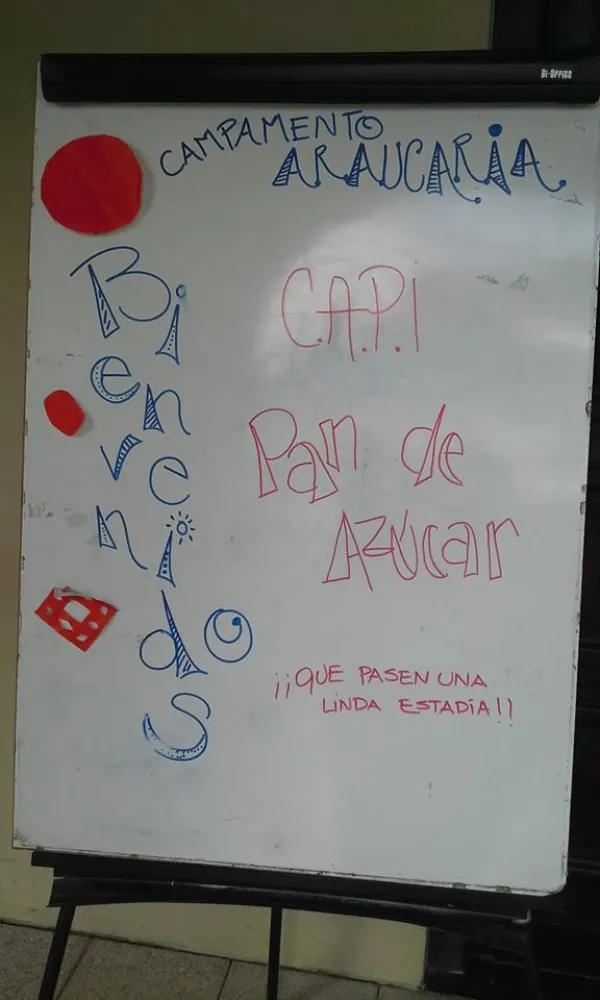 Bi-Office
CAMPAMENTO
ARAUCARIA
Bienvenidos
C.A.P.I
Pan de
AZÚCar
¡¡QUE PASEN UNA
LINDA ESTADÍA!!